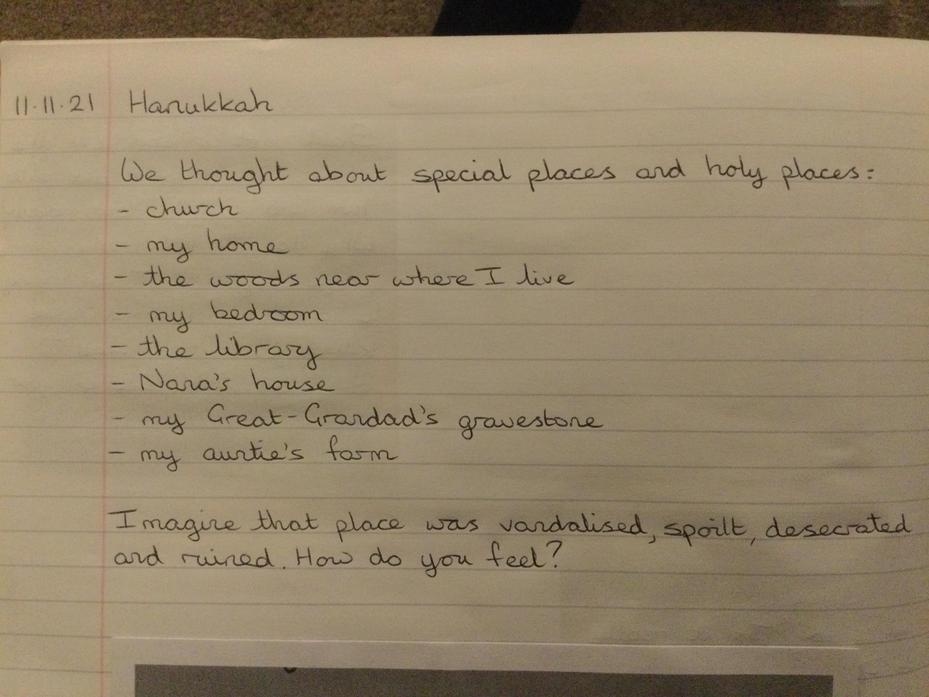 11.11.21 Hanukkah
We thought about special places and holy places:
- church
- my home
- the woods near where I live
- my bedroom
- the library
- Nana's house
- my Great-Grandad's gravestone
- my auntie's farm
Imagine that place was vandalised, spoilt, desecrated
and ruined. How do you feel?